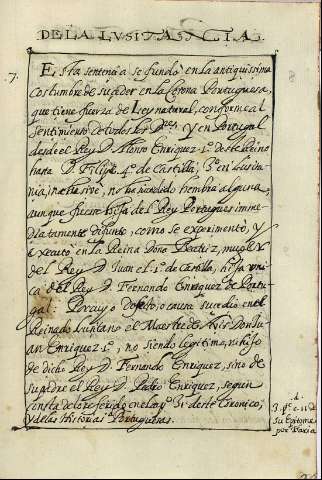 DE LA LVSITANCIA.
7.
Esta sentencia se fundó en la antiquissima
costumbre de suçeder en la Corona Portuguesa,
que tiene fuerza de Ley natural, conforme al
sentimiento de todos los D.res, y en Portugal
desde el Rey D. Alonso Enriquez 1.º deste Reino
hasta D. Filipe 4.º de Castilla, 3.º en Lusita
nia, inclusivè, no ha sucedido hembra alguna,
aunque fuesse hija del Rey Portugues imme
diatamente difunto, como se experimentó, y
executò en la Reina Doña Beatriz, muger
del Rey D. Juan el 1.º de Castilla, hija vni
ca del Rey D. Fernando Enriquez de Portu
gal: Por cuyo defecto, o causa sucedio en el
Reinado Lusitano el Maestre de Avis Don Ju
an Enriquez 1.º, no siendo legitimo, ni hijo
de dicho Rey D. Fernando Enriquez, sino de
su padre el Rey D. Pedro Enriquez, segun
consta de lo referido en el 31. deste Cronico,
y de las Historias Portuguesas.
3. p.e c. 11 d
su Epitome
por Faria